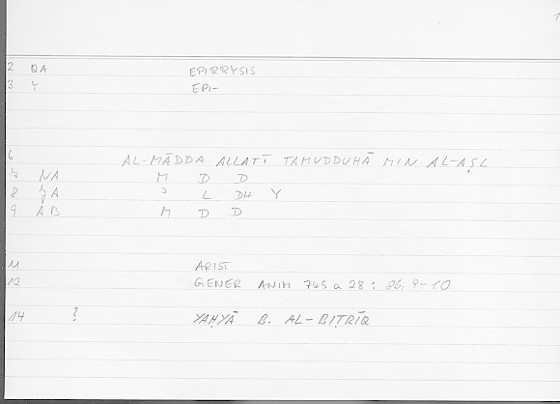 1
2 QA EPIRRYSIS
3 Y EPI-
6 AL-MĀDDA ALLATĪ TAMUDDUHĀ MIN AL-AṢL
7 NA M D D
8 L DH Y
9 AB M D D
11 ARIST
12 GENER ANIM 745 a 28 : 86, 9-10
14 ? YAḤYĀ B. AL-BIṬRĪQ